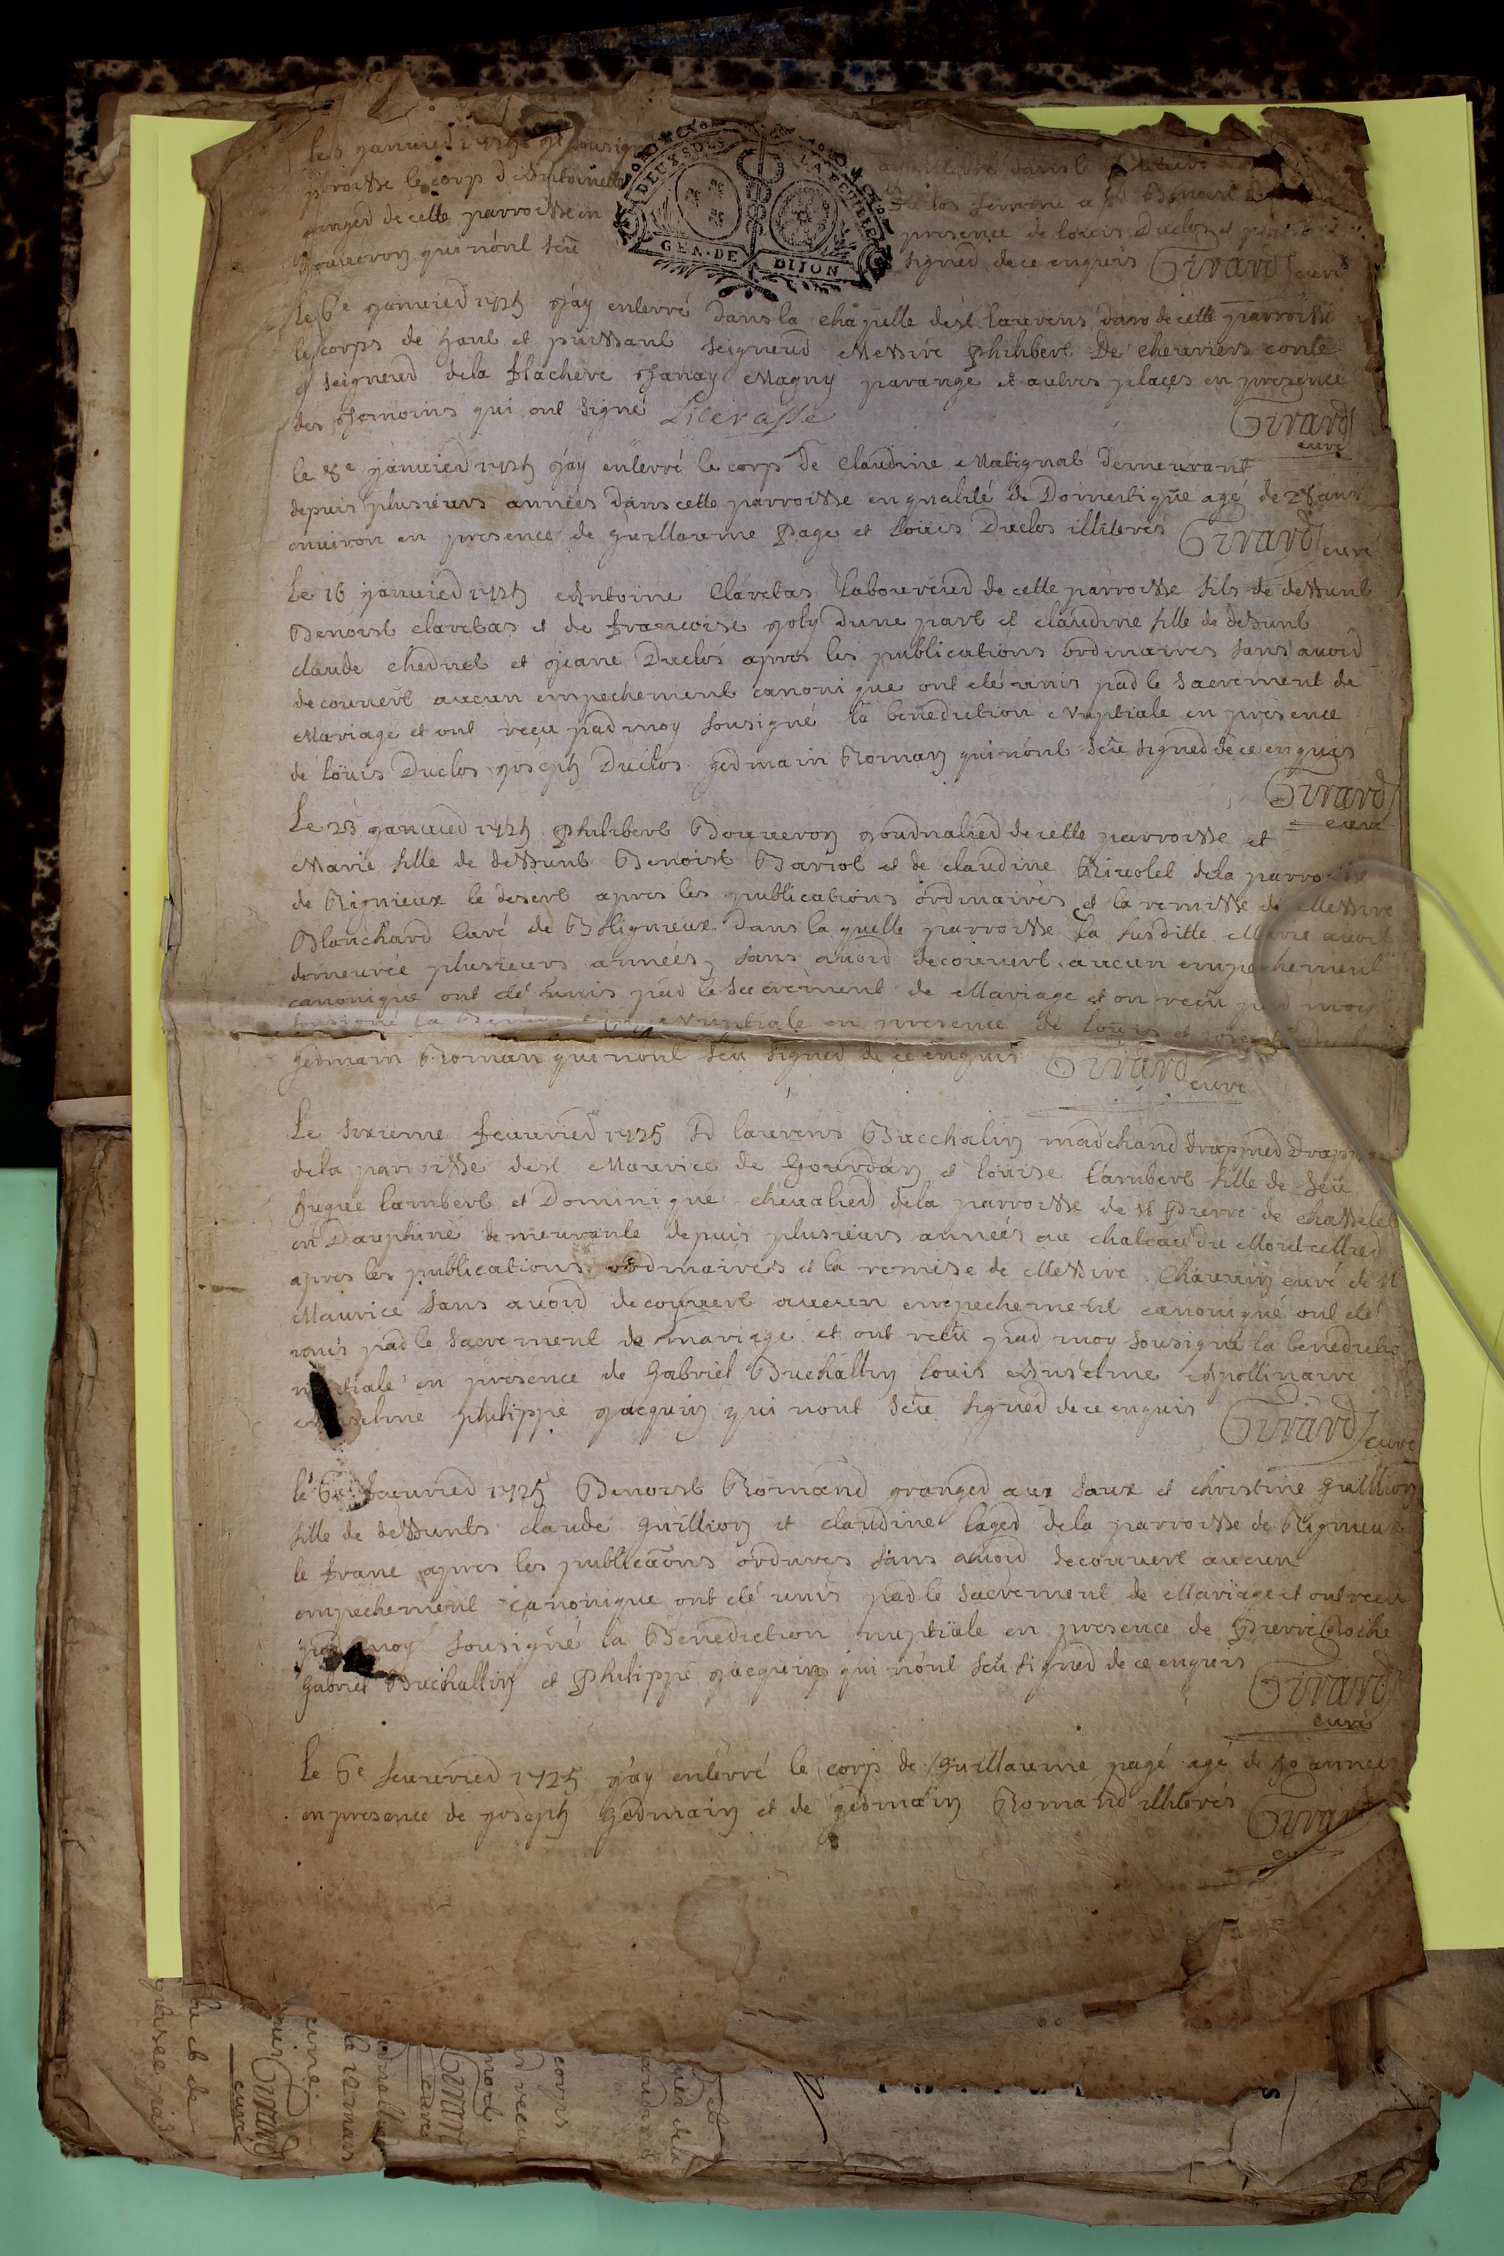 Le 5 janvier 1725 sousigné
parroisse le corps d'Antoinette
granger de cette parroisse en presence de loüis Duclos et
Bouueron qui n'ont sçeu signer de ce enquis Girard curé
DEUX SOLS LA FEUILLE
GEN. DE DIJON
Le 6e janvier 1725 j'ay enterré dans la chapelle de st laurens dans de cette parroisse
le corps de haut et puissant seigneur Messire philibert De cheuriers conte
et seigneur de la flachere Magny parange et autres places en presence
des temoins qui ont signé Girard
curé
le 8e janvier 1725 j'ay enterré le corps de Claudine Matignat demeurant
depuis plusieurs années dans cette parroisse en qualité de Domestique agé de ans
enuiron en presence de guillaume page et loüis Duclos illiterés Girard curé
Le 16 janvier 1725 Antoine Claretas laboureur de cette parroisse fils de deffunt
Benoist claretas et de françoise joly d'une part et claudine fille de deffunt
claude chednel et jeane Duclos apres les publications ordinaires sans auoir
decouuert aucun empechement canonique ont eté unis par le sacrement de
Mariage et ont reçu par moy sousigné la benediction Nuptiale en presence
de loüis Duclos joseph Duclos germain Roman qui n'ont sçeu signer de ce enquis
Girard
curé
Le 23 janvier 1725 philibert Bouueron journalier de cette parroisse et
Marie fille de deffunt Benoist Bariot et de claudine Riuolet de la parroisse
de Rignieux le desert apres les publications ordinaires et la remisse de Messire
Blanchard curé de Bligneux dans la quelle parroisse la susditte Marie auoit
demeurée plusieurs années, sans auoir decouuert aucun empechement
canonique ont eté unis par le sacrement de Mariage et on reçeu par moy
sousigné la Nuptiale en presence de loüis et joseph
germain Roman qui n'ont sçeu signer de ce enquis Girard
curé
Le sixieme feuurier 1725 sr laurens Buchalin marchand drappier
de la parroisse de st Maurice de Gourdan et loüise lambert fille de feü
hugue lambert et Dominique cheualier de la parroisse de st pierre de chasselet
en Dauphiné demeurante depuis plusieurs années au chateau du Montcellier
apres les publications ordinaires et la remise de Messire Chauuin curé de st
Maurice sans auoir decouuert aucun empechement canonique ont eté
unis par le sacrement de mariage et ont reçeu par moy sousigné la benedictio
nuptiale en presence de Gabriel Buchallin louis Anselme Apollinaire
Anselme philippe jacquin qui n'ont sçeu signer de ce enquis Girard
curé
le 6e feuurier 1725 Benoist Romand granger aux saux et christine guillion
fille de deffunts claude guillion et claudine lager de la parroisse de Rigneux
le franc apres les publicaons ordinres sans auoir decouuert aucun
empechement canonique ont eté unis par le sacrement de Mariage et ont reçeu
par moy sousigné la Benediction nuptiale en presence de pierre Roche
gabriel Buchallin et philippe jacquin qui n'ont sçeu signer de ce enquis
Girard
curé
Le 6e feuurier 1725 j'ay enterré le corps de guillaume pagé agé de années
en presence de joseph Germain et de germain Romand illiterés Girard